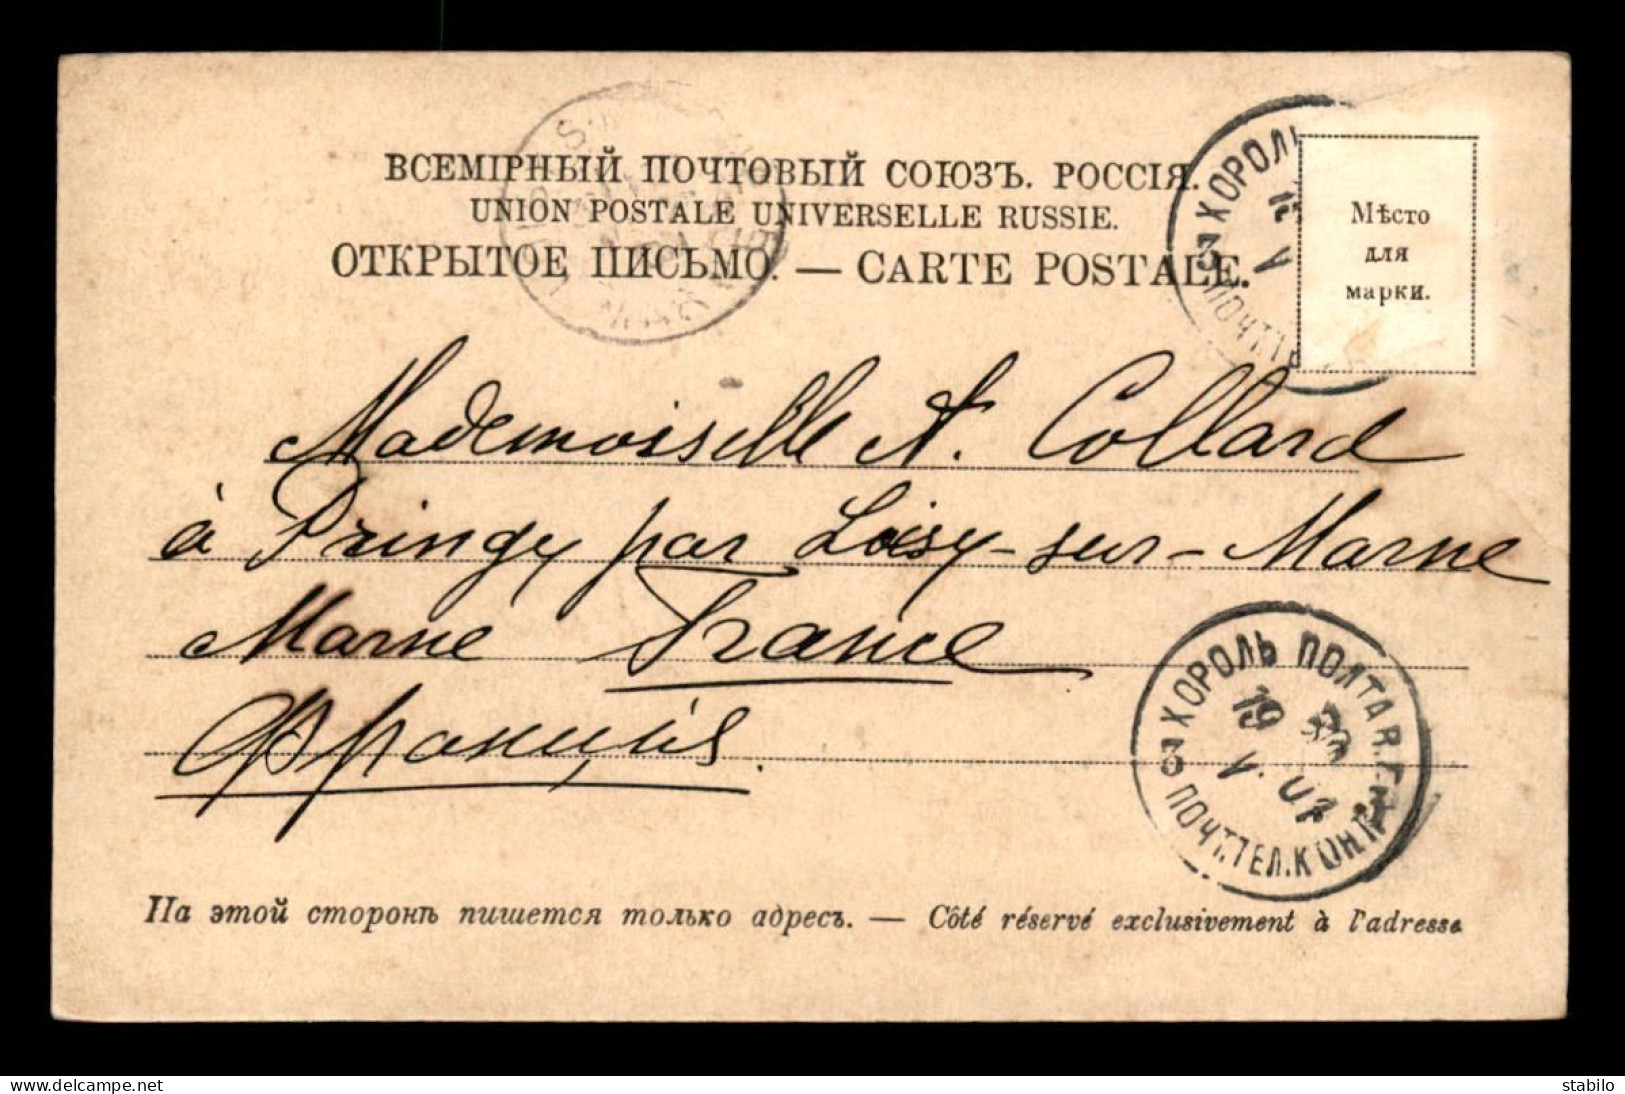 ВСЕМІРНЫЙ ПОЧТОВЫЙ СОЮЗЪ. РОССІЯ.
UNION POSTALE UNIVERSELLE RUSSIE.
ОТКРЫТОЕ ПИСЬМО. — CARTE POSTALE.
ХОРОЛЬ
3
ПОЧТ.
Мѣсто
для
марки.
Mademoiselle A. Collard
à Pringy par Loisy-sur-Marne
Marne France
Франція.
ХОРОЛЬ ПОЛТАВ.Г.
19
V
3
ПОЧТ.ТЕЛ.КОН.
На этой сторонѣ пишется только адресъ. — Côté réservé exclusivement à l'adresse
www.delcampe.net
stabilo